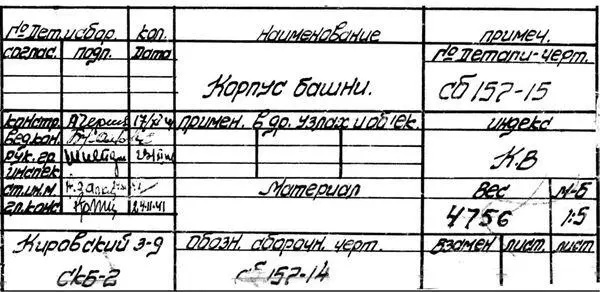 № Дет. и сбор. кол. Наименование примеч.
соглас. подп. Дата № Детали-черт.
Корпус башни. сб 157-15
констр. примен. в др. узлах и об'ек. индекс
вед. кон.
рук. гр. КВ
инспек.
ст. инж. Материал Вес М-Б
гл. конс. 24-II-41 4756 1:5
Кировский з-д Обозн. сбороч. черт. Взамен лист. лист
СКБ-2 сб 157-14